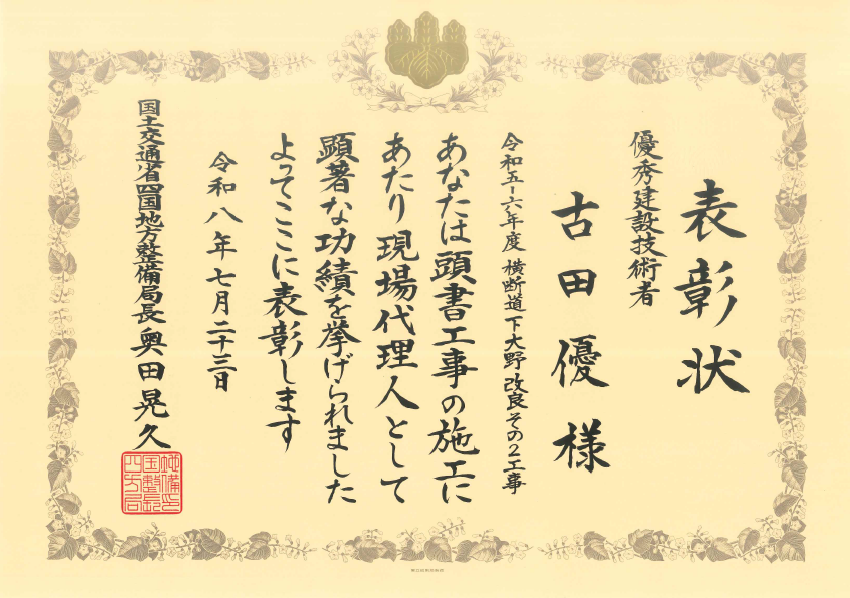 表彰状
優秀建設技術者
古田優様
令和五-六年度 横断道 下大野改良その2工事
あなたは頭書工事の施工に
あたり現場代理人として
顕著な功績を挙げられました
よってここに表彰します
令和八年七月二十三日
国土交通省四国地方整備局長 奥田晃久